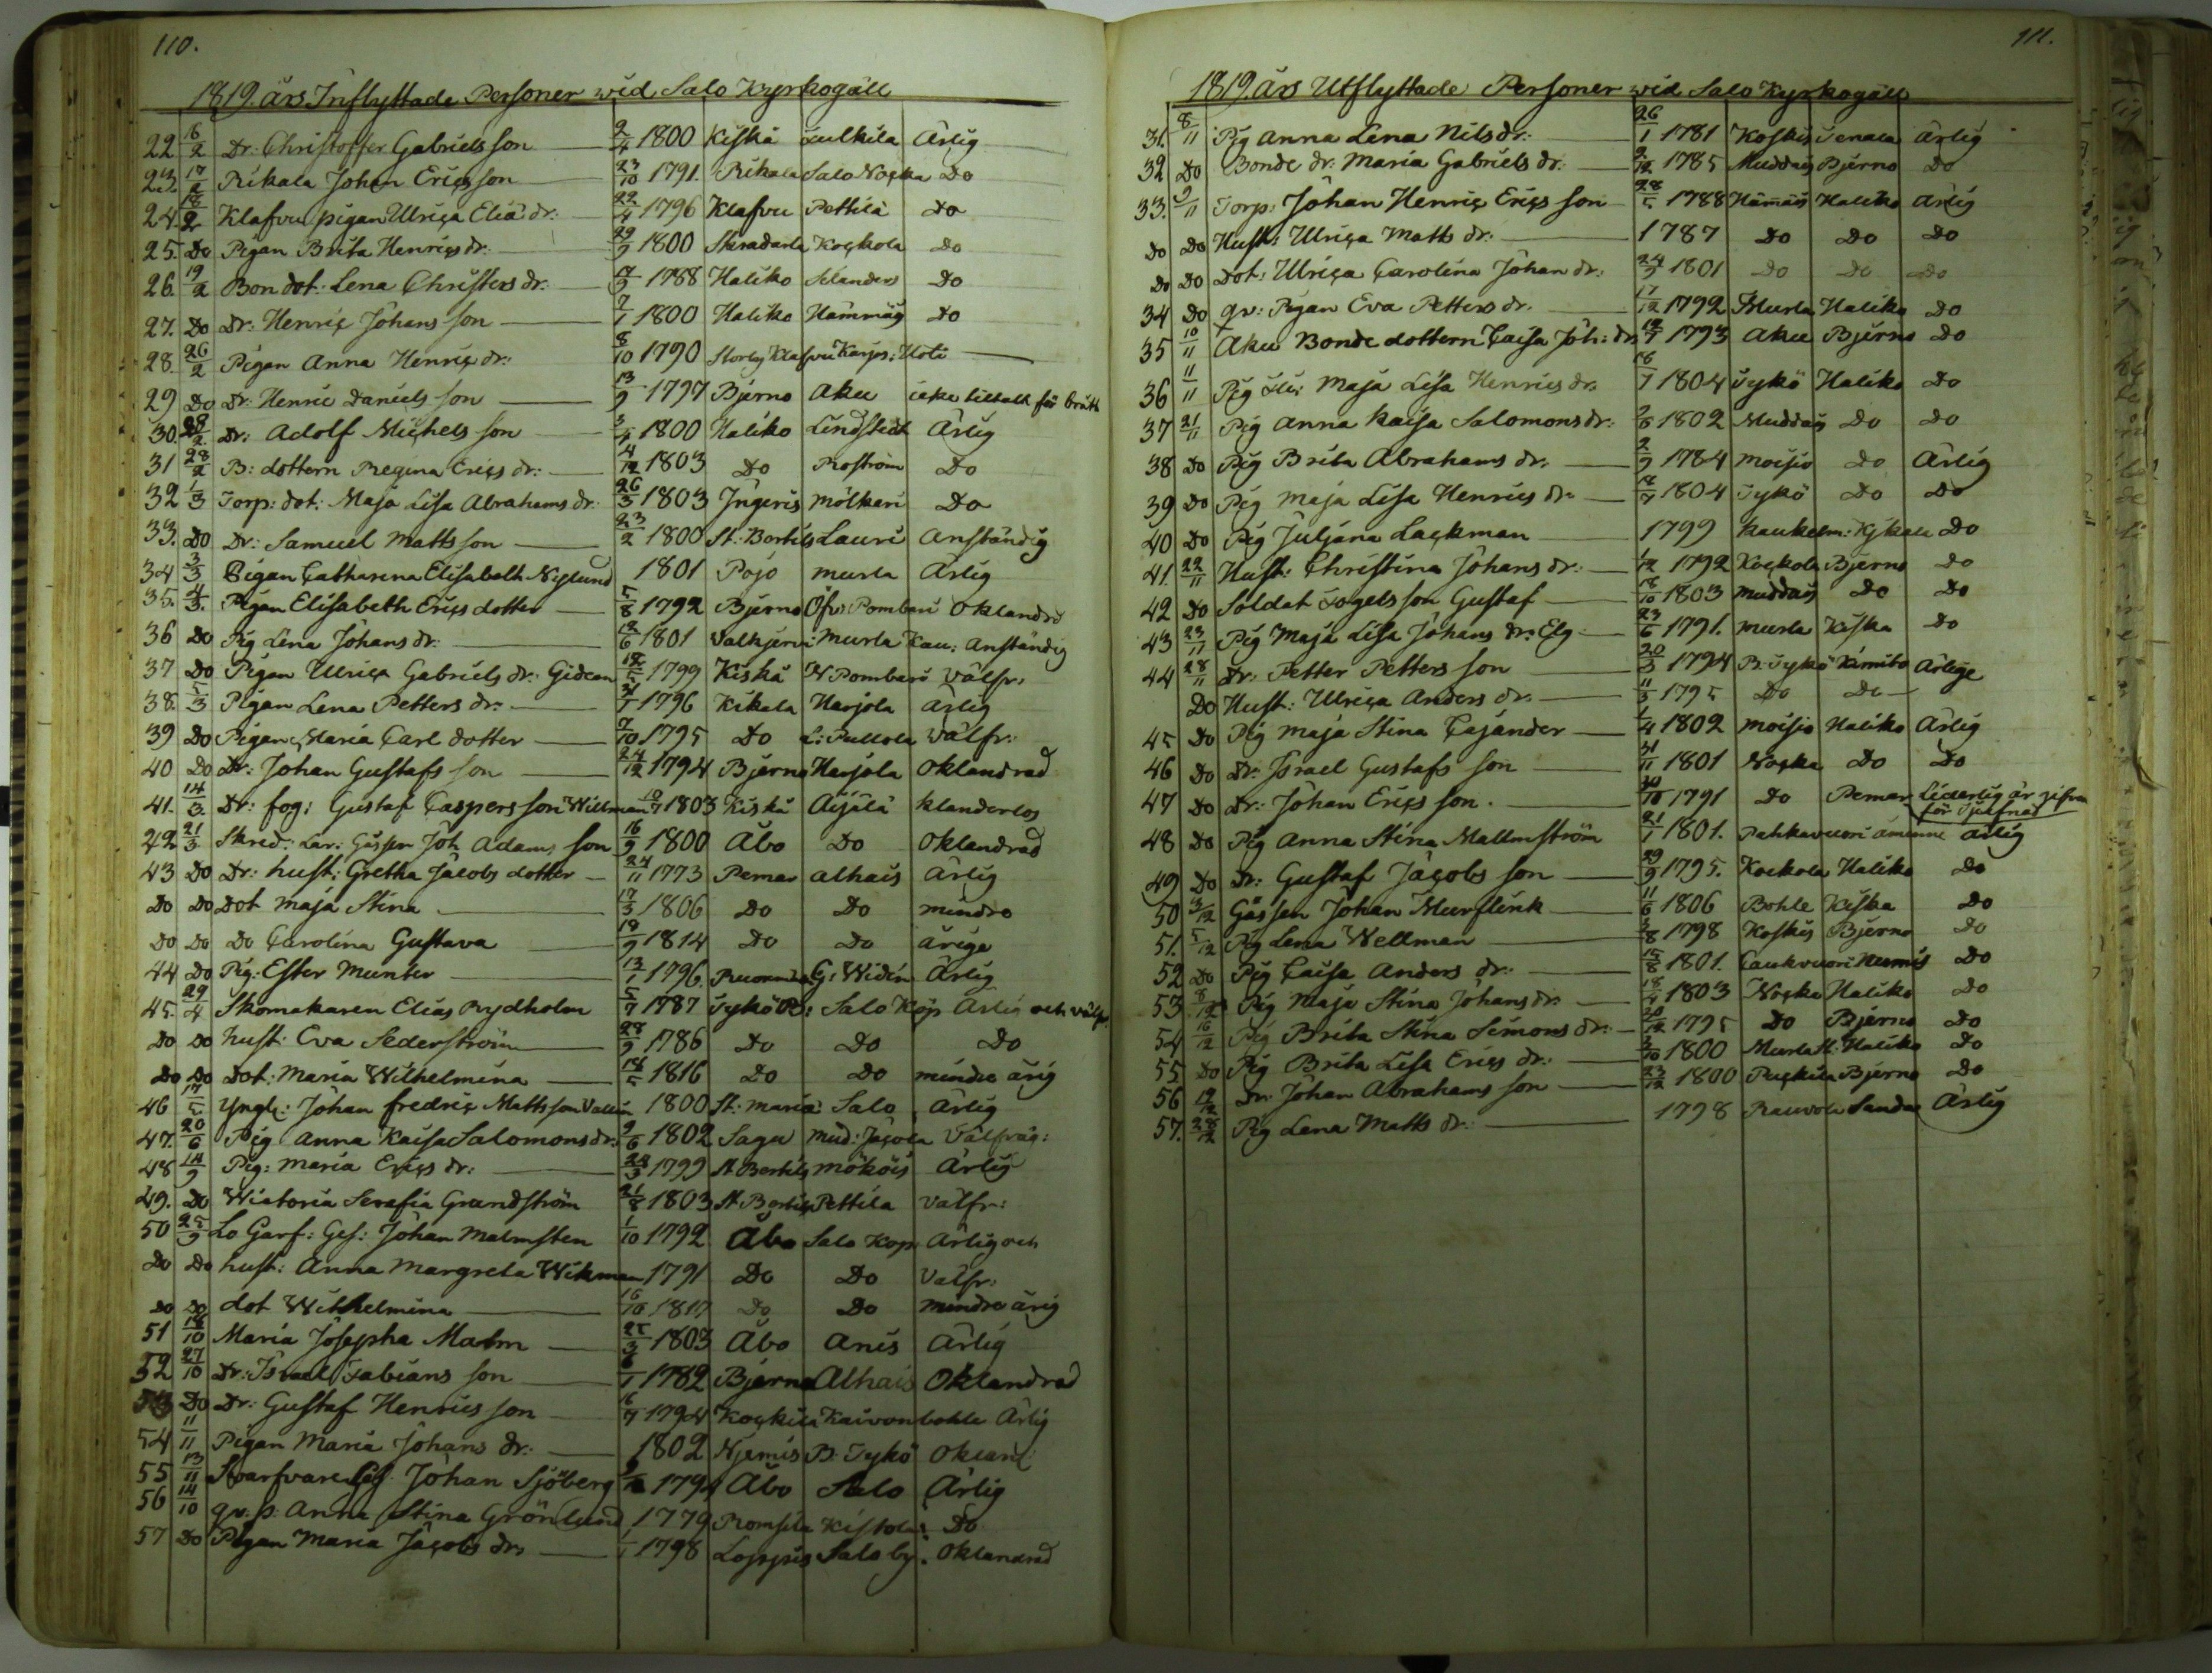 110.
1819. års Inflyttade Personer wid Salo Kyrkogäll
22 16/2 Dr: Christoffer Gabriels son 2/4 1800 Kiskå Fulkila Ärlig
23. 17/2 Rikala Johan Erics son 23/10 1791. Rikala Salo Nocka Do
24. 18/2 Klafvu pigan Ulrica Eliä dr: 22/4 1796 Klafvu Pettilä do
25. Do Pigan Brita Henrics dr. 29/9 1800 Kockola do
26. 19/2 Bon dot: Lena Christers dr: 17/9 1788 Haliko Selanders Do
27. Do Dr: Henric Johans son 7/1 1800 Haliko Hämmäis do
28. 26/2 Pigan Anna Henric dr: 8/10 1790 Storby Klafvu Karjas: Uoti
29 Do Dr: Henric Daniels son 13/9 1797 Bjerno Aku icke tiltalt för brått
30. 28/2 Dr: Adolf Michels son 3/4 1800 Haliko Lindstedt Ärlig
31 28/2 B: dottern Regina Erics dr: 4/12 1803 Do Roström Do
32 1/3 Torp: dot: Maja Lisa Abrahams dr: 26/3 1803 Ingeris Mölkäri Do
33. Do Dr: Samuel Matts son 23/2 1800 St: Bertils Lauri Anständig
34 3/3 Pigan Catharina Elisabeth Nylund 1801 Pojo Murla Ärlig
35. 4/3. Pigan Elisabeth Erics dotter 5/8 1792 Bjerno Öfv: Pombari Oklandrd
36 Do Pig Lena Johans dr: 12/6 1801 Valkjervi Murla Kau: Anständig
37 Do Pigan Ulrica Gabriels dr: Gidean 12/5 1799 Kiskå N Pombari Välfr:
38. 5/3 Pigan Lena Petters dr. 31/1 1796 Kikala Harjola Ärlig
39 Do Pigan Maria Carl dotter 7/10 1795 Do L: Pullola Välfr:
40 Do Dr: Johan Gustafs son 24/12 1794 Bjerno Harjola Oklandrad
41. 14/3. Dr: fog: Gustaf Caspers son Willman 10/7 1803 Kiskå Aijälä klanderlos
42 21/3 Skred: Lär: Gåssen Joh Adams son 16/9 1800 Åbo Do Oklandrad
43 Do Dr: hust: Gretha Jacobs dotter 24/11 1773 Pemar Alhais Ärlig
Do Do Dot Maja Stina 17/3 1806 Do Do mindre
Do Do Do Carolina Gustava 18/9 1814 Do Do åriga
44 Do Pig: Ester Munter 13/1 1796. G: Widin Ärlig
45. 29/4 Skomakaren Elias Rydholm 5/7 1787 Tykö B: Salo Köp Ärlig och välfr
Do Do hust: Eva Sederström 28/9 1786 Do Do Do
Do Do Dot: Maria Wilhelmina 14/5 1816 Do Do mindre årig
46 17/5 Yngl: Johan fredric Matts son Vallin 1800 St: Maria Salo Ärlig
47. 20/6 Pig Anna Kaisa Salomons dr: 9/6 1802 Sagu Mud: Jacola Välfräg:
48 14/9 Pig: Maria Erics dr: 24/3 1799 St Bertils Mököis Ärlig
49. Do Wictoria Serafia Grandström 21/8 1803 St Bertils Pettila Välfr:
50 25/9 Lo Garf: Ges: Johan Malmsten 1/10 1792 Åbo Salo Kop Ärlig och
Do Do hust: Anna Margreta Wikman 1791 Do Do Välfr:
Do Do dot Wilhelmina 16/10 1817 Do Do mindre årig
51 18/10 Maria Josepha Malm 25/3 1803 Åbo Anis Ärlig
52 27/10 Dr: Israel Fabians son 6/1 1782 Bjerno Alhais Oklandrad
53 Do Dr: Gustaf Henrics son 16/7 1794 Kockila Kaivonbohle Ärlig
54 11/11 Pigan Maria Johans dr: 1802 Njemis B: Tykö Okland:
55 13/11 Svarfvare Ges Johan Sjöberg 1794 Åbo Salo Ärlig
56 14/10 qv: p: Anna Stina Grönlund 1779 Romsila Kistola: Do
57 Do Pigan Maria Jacobs dr. 1/1 1798 Lojpis Salo by. Oklandrad
111.
1819. års Utflyttade Personer wid Salo Kyrkogäll
31. 8/11 Pig Anna Lena Nils dr: 26/1 1781 Koskis Tenala Ärlig
32 Do Bonde dr: Maria Gabriels dr. 2/12 1785 Muddais Bjerno Do
33. 9/11 Torp: Johan Henric Erics son 28/5 1788 Hämäis Haliko Ärlig
Do Do Hust: Ulrica Matts dr: 1787 Do Do Do
Do Do Dot: Ulrica Carolina Johan dr: 24/9 1801 Do Do Do
34 Do qv: Pigan Eva Petters dr. 17/12 1792 Murla Haliko Do
35 10/11 Aku Bonde dottern Caisa Joh: dr 12/7 1793 Aku Bjerno Do
36 11/11 Pig Maja Lisa Henrics dr. 16/7 1804 Tykö Haliko Do
37 21/11 Pig Anna Kaisa Salomons dr: 2/6 1802 Muddais Do Do
38 Do Pig Brita Abrahams dr. 2/9 1784 Moisio Do Ärlig
39 Do Pig Maja Lisa Henrics dr. 12/7 1804 Tykö Do Do
40 Do Pig Juljana Lackman 1799 Kaukelm: Kjkala Do
41. 22/11 Hust: Christina Johans dr: 1/12 1792 Kockola Bjerno Do
42 Do Soldat Fogels son Gustaf 18/10 1803 Muddais Do Do
43 23/11 Pig Maja Lisa Johans dr: Elg 23/6 1791. Murla Kiska Do
44 28/11 Dr: Petter Petters son 20/3 1794 B: Tykö Kimito Ärlige
Do Hust: Ulrica Anders dr. 11/3 1795 Do Do
45 Do Pig Maja Stina Cajander 1/4 1802 Moisio Haliko Ärlig
46 Do Dr: Israel Gustafs son 31/11 1801 Nocka Do Do
47 Do Dr: Johan Erics son. 30/10 1791 Do Pemar Liderlig är
för Tjufnad
48 Do Pig Anna Stina Mallmström 21/1 1801. Pahkavuori Ärlig
49 Do Dr: Gustaf Jacobs son 29/9 1795. Kockola Haliko Do
50 3/12 Gåssen Johan Murflink 11/6 1806 Bohle Kiska Do
51. 5/12 Pig Lena Wellman 3/8 1798 Koskis Bjerno Do
52 Do Pig Caisa Anders dr: 15/8 1801. Caukvuori Do
53 8/12 Pig Maja Stina Johans dr. 18/4 1803 Nocka Haliko Do
54 16/12 Pig Brita Stina Simons dr: 30/12 1795 Do Bjerno Do
55 Do Pig Brita Lisa Erics dr: 3/10 1800 Murla St: Haliko Do
56 19/12 Dr: Johan Abrahams son 23/12 1800 Puckila Bjerno Do
57. 28/12 Pig Lena Matts dr: 1798 Rauvola Ärlig